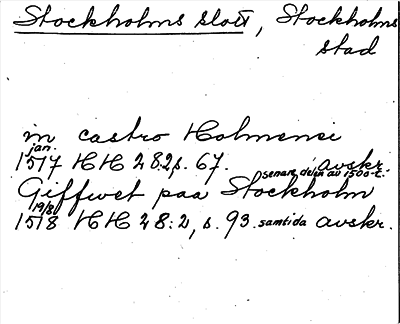 Stockholms slott, Stockholms
stad
in castro Holmensi
jan.
1517 HH 28:2, s. 67. avskr.
senare delen av 1500-t.
Giffwet paa Stockholm
19/8
1518 HH 28:2, s. 93. samtida avskr.